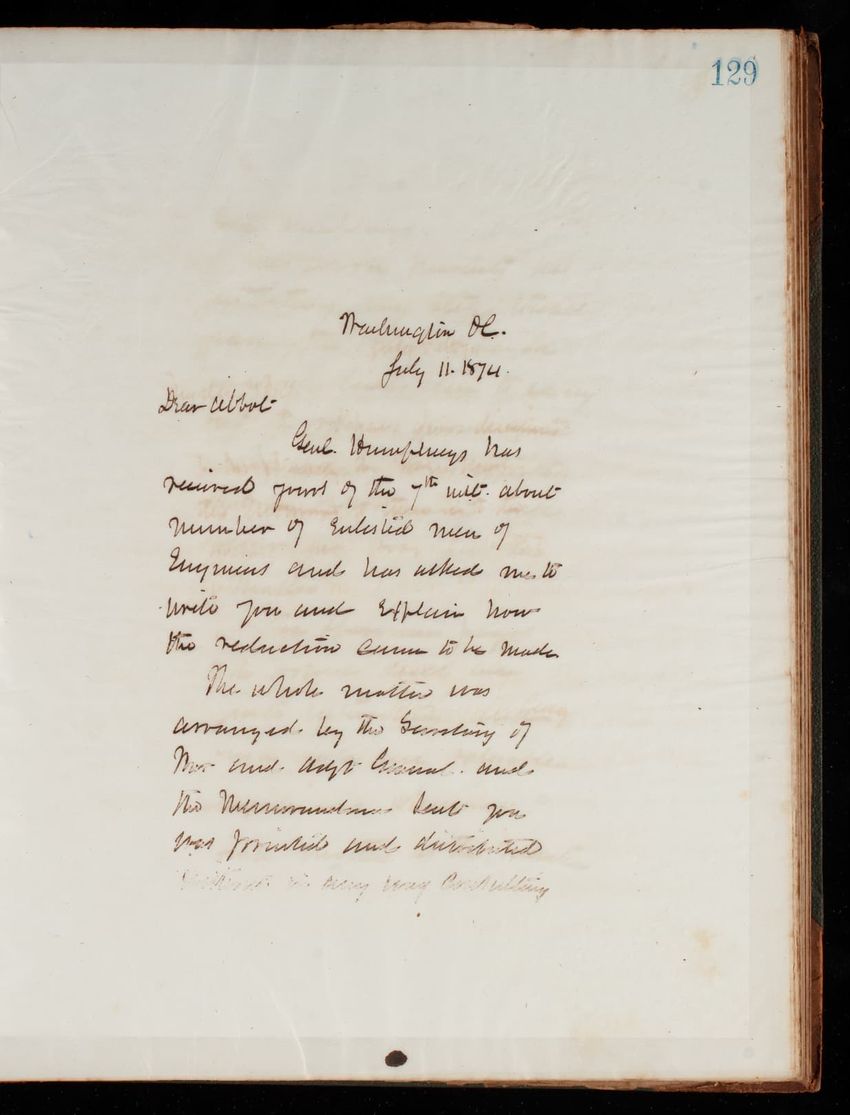 129
Washington DC.
July 11. 1874.
Dear Abbot
Genl. Humphreys has
received yours of the 7th inst. about
number of Enlisted men of
Engineers and has asked me to
write you and Explain how
the reduction came to be made
The whole matter was
arranged by the Secretary of
War and Adjt General. and
the Memorandum sent you
was printed and distributed
without in any way Consulting